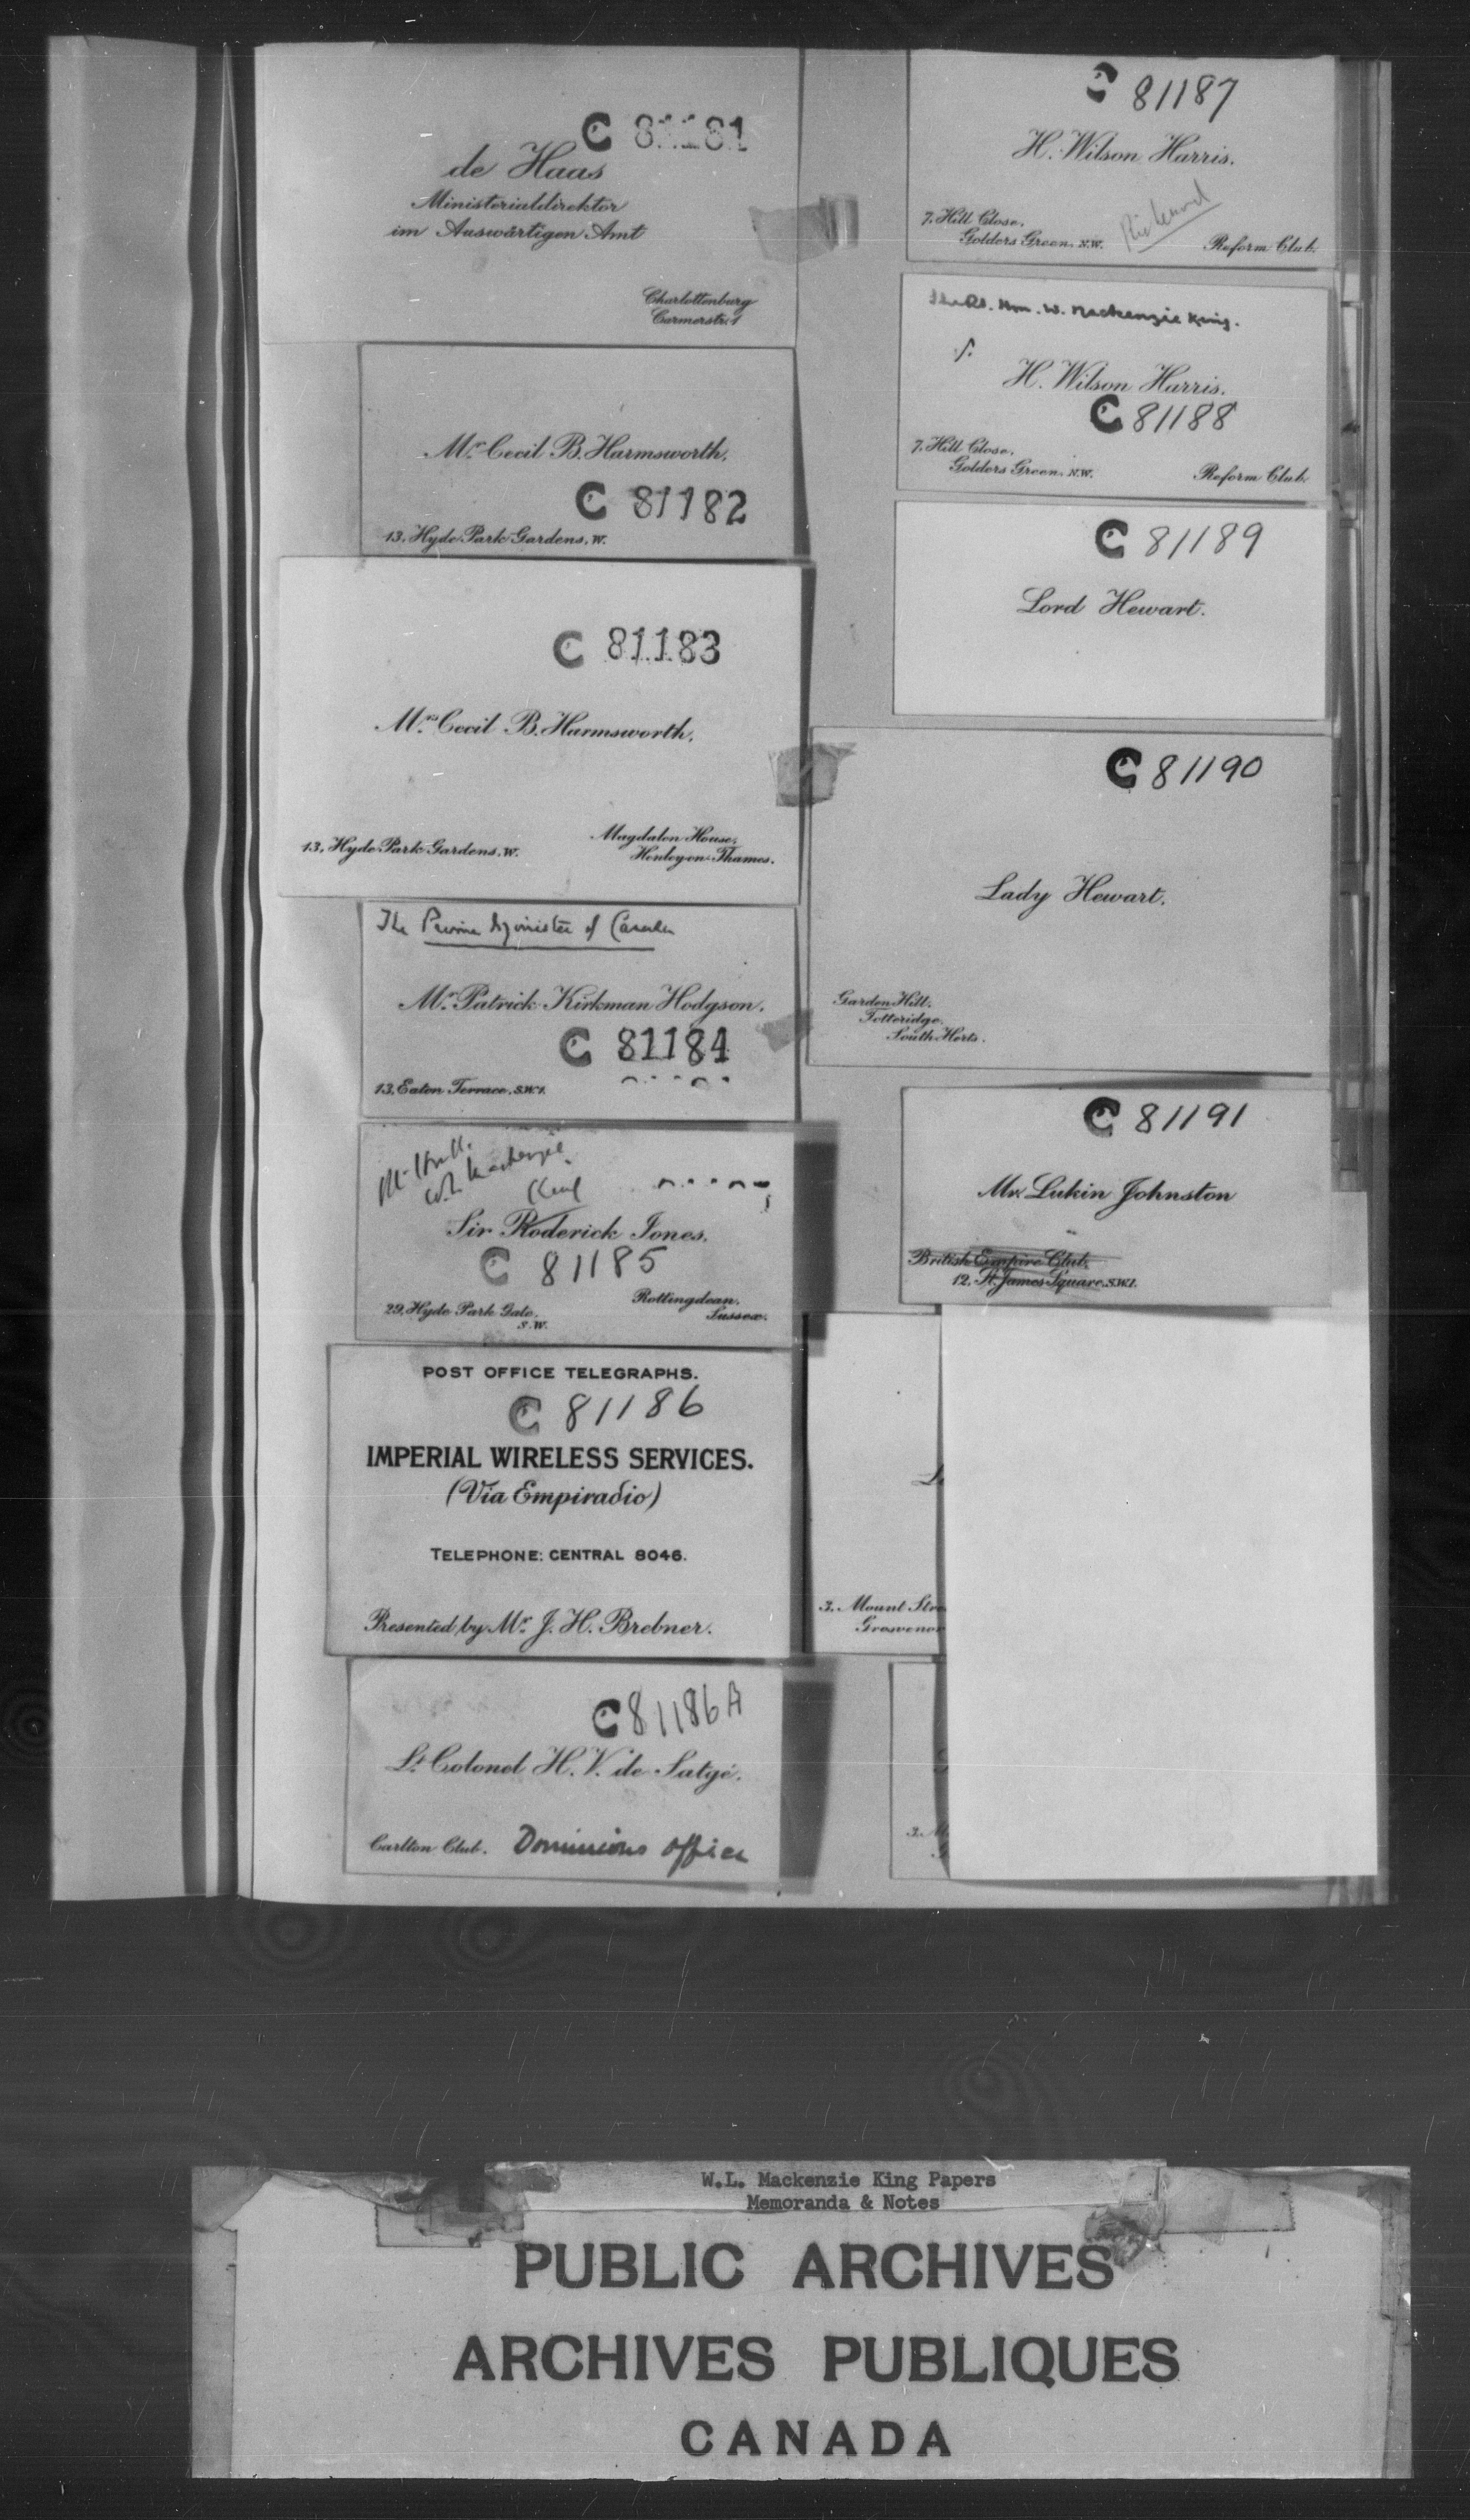 C 81181
de Haas
Ministerialdirektor
im Auswärtigen Amt
Charlottenburg
Carmerstr. 1
Mr. Cecil B. Harmsworth.
C 81182
13, Hyde Park Gardens, W.
C 81183
Mrs. Cecil B. Harmsworth.
13, Hyde Park Gardens, W.
Magdalen House,
Henley-on-Thames.
The Prime Minister of Canada
Mr. Patrick Kirkman Hodgson.
C 81184
13, Eaton Terrace, S.W.1.
W.L. Mackenzie
King
Sir Roderick Jones.
C 81185
29, Hyde Park Gate,
S.W.
Rottingdean,
Sussex.
POST OFFICE TELEGRAPHS.
C 81186
IMPERIAL WIRELESS SERVICES.
(Via Empiradio)
TELEPHONE: CENTRAL 8046.
Presented by Mr. J. H. Brebner.
C 81186A
Lt. Colonel H. V. de Satgé.
Carlton Club. Dominions Office
C 81187
H. Wilson Harris.
7, Hill Close,
Golders Green, N.W.
Reform Club.
The Rt. Hon. W. Mackenzie King.
H. Wilson Harris.
C 81188
7, Hill Close,
Golders Green, N.W.
Reform Club.
C 81189
Lord Hewart.
C 81190
Lady Hewart.
Garden Hill,
Totteridge,
South Herts.
C 81191
Mr. Lukin Johnston
British Empire Club,
12, St. James Square, S.W.1.
3, Mount Stre
Grosvenor
W.L. Mackenzie King Papers
Memoranda & Notes
PUBLIC ARCHIVES
ARCHIVES PUBLIQUES
CANADA